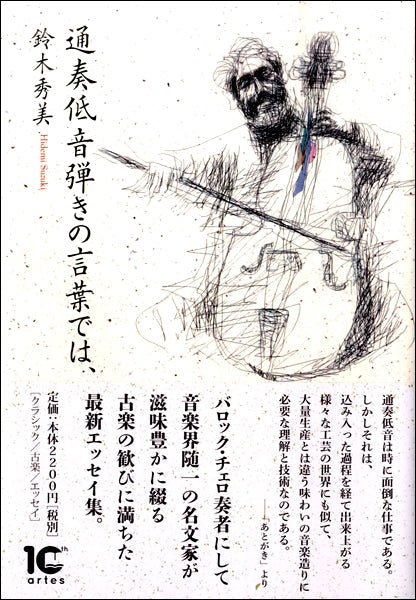 通奏低音弾きの言葉では、
鈴木秀美
Hidemi Suzuki
通奏低音は時に面倒な仕事である。
しかしそれは、
込み入った過程を経て出来上がる
様々な工芸の世界にも似て、
大量生産とは違う味わいの音楽造りに
必要な理解と技術なのである。
──「あとがき」より
バロック・チェロ奏者にして
音楽界随一の名文家が
滋味豊かに綴る
古楽の歓びに満ちた
最新エッセイ集。
定価:本体2200円[税別]
[クラシック/古楽/エッセイ]
10th
artes